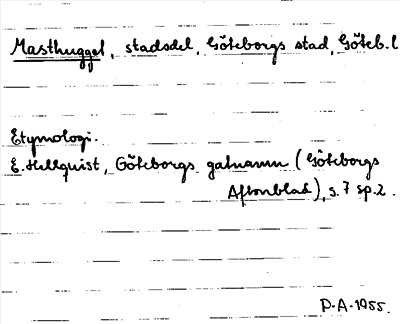 Masthugget, stadsdel, Göteborgs stad, Göteb. l
Etymologi.
E. Hellquist, Göteborgs gatunamn (Göteborgs
Aftonblad), s. 7 sp. 2.
D.A. 1955.